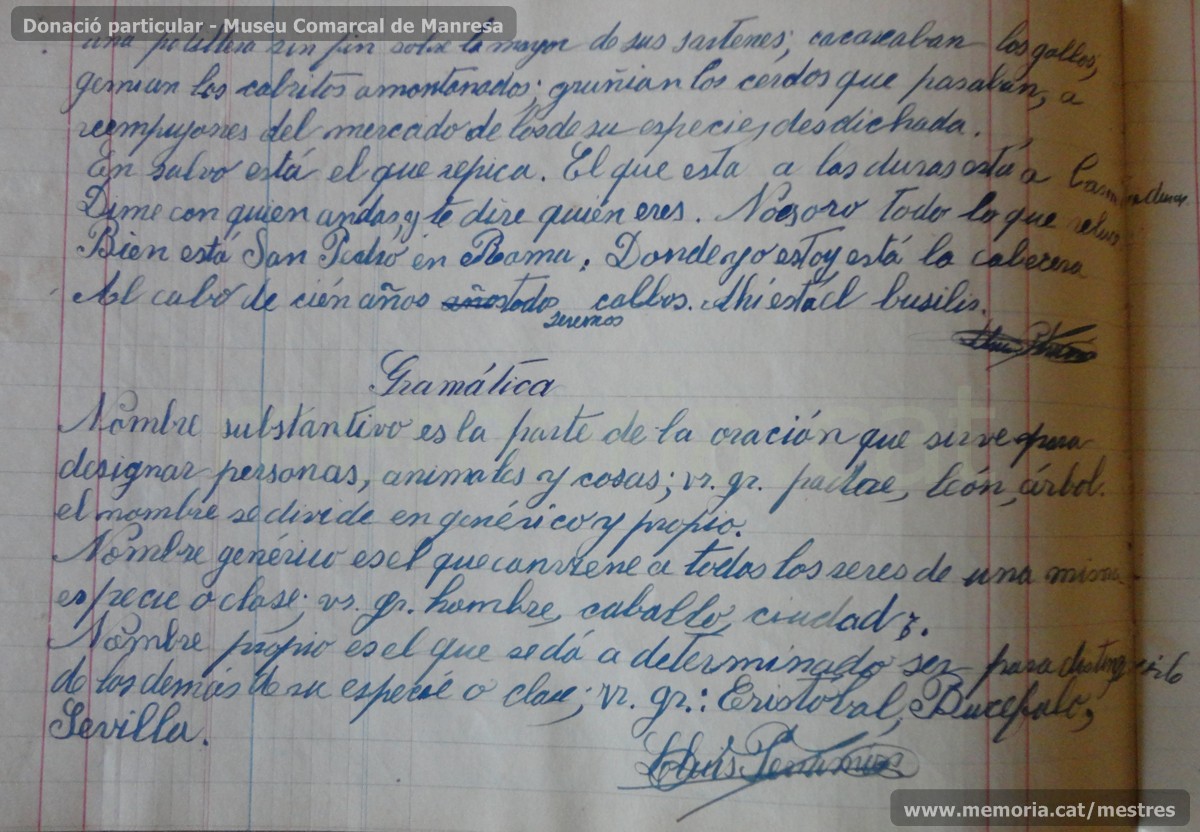 Donació particular - Museu Comarcal de Manresa
una sin fin sobre la mayor de sus sartenes; cacareaban los gallos,
gemian los cabritos amontonados; gruñian los cerdos que pasaban, a
rempujones del mercado de los de su especie, desdichada.
En salvo está el que repica. El que esta a las duras está a las maduras.
Dime con quien andas, y te dire quién eres. No es oro todo lo que reluce
Bien está San Pedro en Roma. Donde yo estoy está la cabecera
Al cabo de cién años años todos seremos calbos. Ahi está el busilis.
Gramática
Nombre substantivo es la parte de la oración que sirve para
designar personas, animales y cosas; vr. gr. padre, león, árbol.
el nombre se divide en genérico y propio.
Nombre genérico es el que conviene a todos los seres de una misma
especie o clase; vr. gr. hombre, caballo, ciudad.
Nombre propio es el que se dá a determinado ser para distinguirlo
de los demás de su especie o clase; vr. gr.: Cristobal, Bucefalo,
Sevilla.
Lluis
www.memoria.cat/mestres